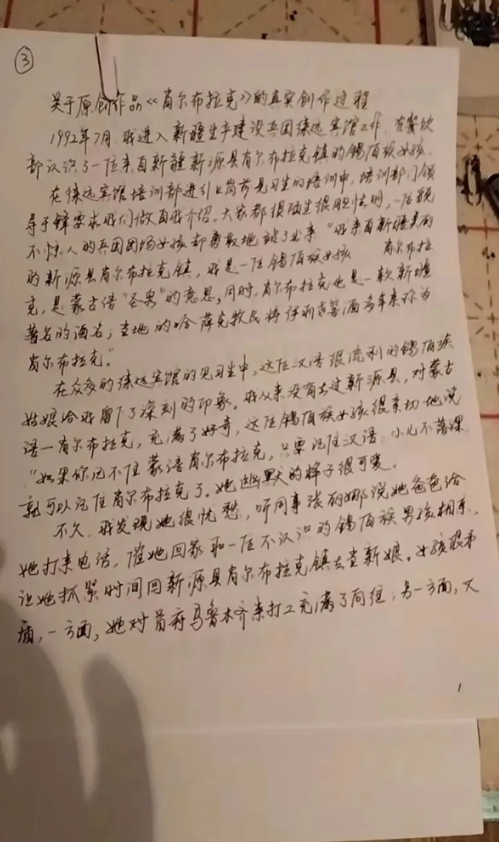 ③
关于原创作品《肖尔布拉克》的真实创作过程
1992年7月我进入新疆生产建设兵团绿远宾馆工作,在餐饮
部认识了一位来自新疆新源县肖尔布拉克镇的锡伯族女孩。
在绿远宾馆培训部进行上岗前见习生的培训中,培训部门领
导于锋要求我们做自我介绍。大家都很陌生很胆怯则,一位貌
不惊人的兵团团场女孩却勇敢地站了出来“我来自新疆美丽
的新源县肖尔布拉克镇,我是一位锡伯族女孩 肖尔布拉
克,是蒙古语“圣泉”的意思,同时,肖尔布拉克也是一款新疆
著名的酒名,当地的哈萨克牧民将伊利老窖酒多年来称为
肖尔布拉克。”
在众多的绿远宾馆的见习生中,这位汉语很流利的锡伯族
姑娘给我留下了深刻的印象。我从来没有去过新源县,对蒙古
语一肖尔布拉克,充满了好奇,这位锡伯族女孩很亲切地说
“如果你记不住蒙语肖尔布拉克,只要记住汉语:小儿不落课
就可以记住肖尔布拉克了。她幽默的样子很可爱。
不久,我发现她很忧愁,听同事张丽娜说她爸爸给
她打来电话,催她回家和一位不认识的锡伯族男孩相亲。
让她抓紧时间回新源县肖尔布拉克镇去当新娘。女孩很希
痛,一方面,她对首府乌鲁木齐来打工充满了向往;另一方面,又
1